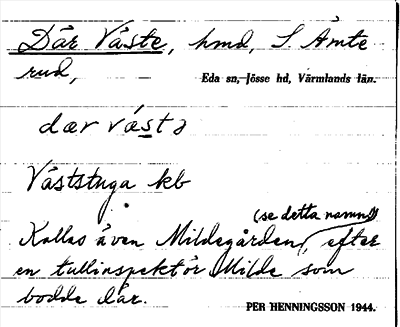 Där Väste, hmd, S. Åmte
rud,
Eda sn, Jösse hd, Värmlands län.
dær vä́stə
Väststuga kb
(se detta namn)
Kallas även Mildegården, efter
en tullinspektör Milde som
bodde där.
PER HENNINGSSON 1944.